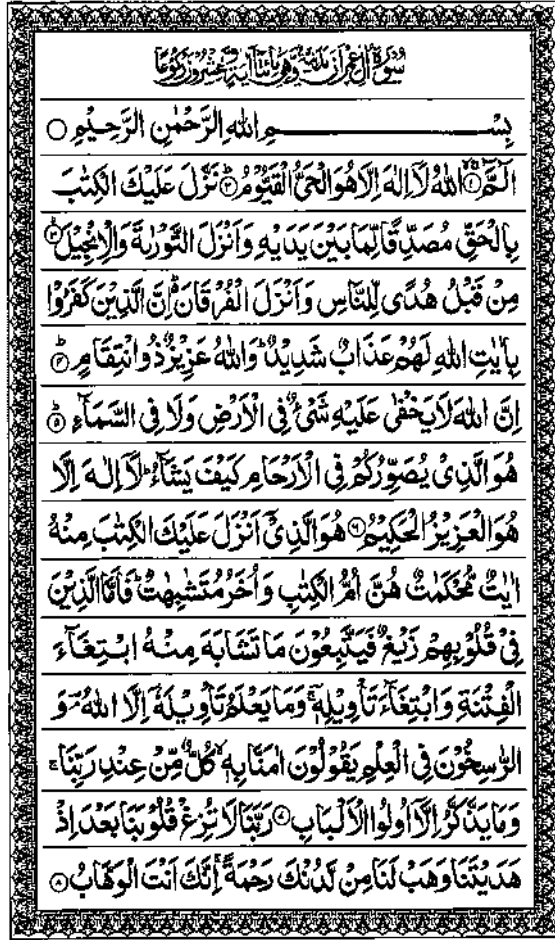 سُوْرَةُ اٰلِ عِمْرٰنَ مَدَنِيَّةٌ وَّهِيَ مِائَتَا اٰيَةٍ وَّعِشْرُوْنَ رُكُوْعًا
بِسْمِ اللهِ الرَّحْمٰنِ الرَّحِيْمِ ○
الٓمّٓ ۙ﴿۱﴾ اللهُ لَاۤ اِلٰهَ اِلَّا هُوَ الْحَيُّ الْقَيُّوْمُ ؕ﴿۲﴾ نَزَّلَ عَلَيْكَ الْكِتٰبَ
بِالْحَقِّ مُصَدِّقًا لِّمَا بَيْنَ يَدَيْهِ وَاَنْزَلَ التَّوْرٰىةَ وَالْاِنْجِيْلَ ۙ﴿۳﴾
مِنْ قَبْلُ هُدًى لِّلنَّاسِ وَاَنْزَلَ الْفُرْقَانَ ؕ اِنَّ الَّذِيْنَ كَفَرُوْا
بِاٰيٰتِ اللهِ لَهُمْ عَذَابٌ شَدِيْدٌ ؕ وَاللهُ عَزِيْزٌ ذُو انْتِقَامٍ ؕ﴿۴﴾
اِنَّ اللهَ لَا يَخْفٰى عَلَيْهِ شَيْءٌ فِى الْاَرْضِ وَلَا فِى السَّمَآءِ ؕ﴿۵﴾
هُوَ الَّذِىْ يُصَوِّرُكُمْ فِى الْاَرْحَامِ كَيْفَ يَشَآءُ ؕ لَاۤ اِلٰهَ اِلَّا
هُوَ الْعَزِيْزُ الْحَكِيْمُ ﴿۶﴾ هُوَ الَّذِىْۤ اَنْزَلَ عَلَيْكَ الْكِتٰبَ مِنْهُ
اٰيٰتٌ مُّحْكَمٰتٌ هُنَّ اُمُّ الْكِتٰبِ وَاُخَرُ مُتَشٰبِهٰتٌ ؕ فَاَمَّا الَّذِيْنَ
فِىْ قُلُوْبِهِمْ زَيْغٌ فَيَتَّبِعُوْنَ مَا تَشَابَهَ مِنْهُ ابْتِغَآءَ
الْفِتْنَةِ وَابْتِغَآءَ تَاْوِيْلِهٖ ۚ وَمَا يَعْلَمُ تَاْوِيْلَهٗۤ اِلَّا اللهُ ۘ وَ
الرّٰسِخُوْنَ فِى الْعِلْمِ يَقُوْلُوْنَ اٰمَنَّا بِهٖ ۙ كُلٌّ مِّنْ عِنْدِ رَبِّنَا ۚ
وَمَا يَذَّكَّرُ اِلَّاۤ اُولُوا الْاَلْبَابِ ﴿۷﴾ رَبَّنَا لَا تُزِغْ قُلُوْبَنَا بَعْدَ اِذْ
هَدَيْتَنَا وَهَبْ لَنَا مِنْ لَّدُنْكَ رَحْمَةً ۚ اِنَّكَ اَنْتَ الْوَهَّابُ ﴿۸﴾